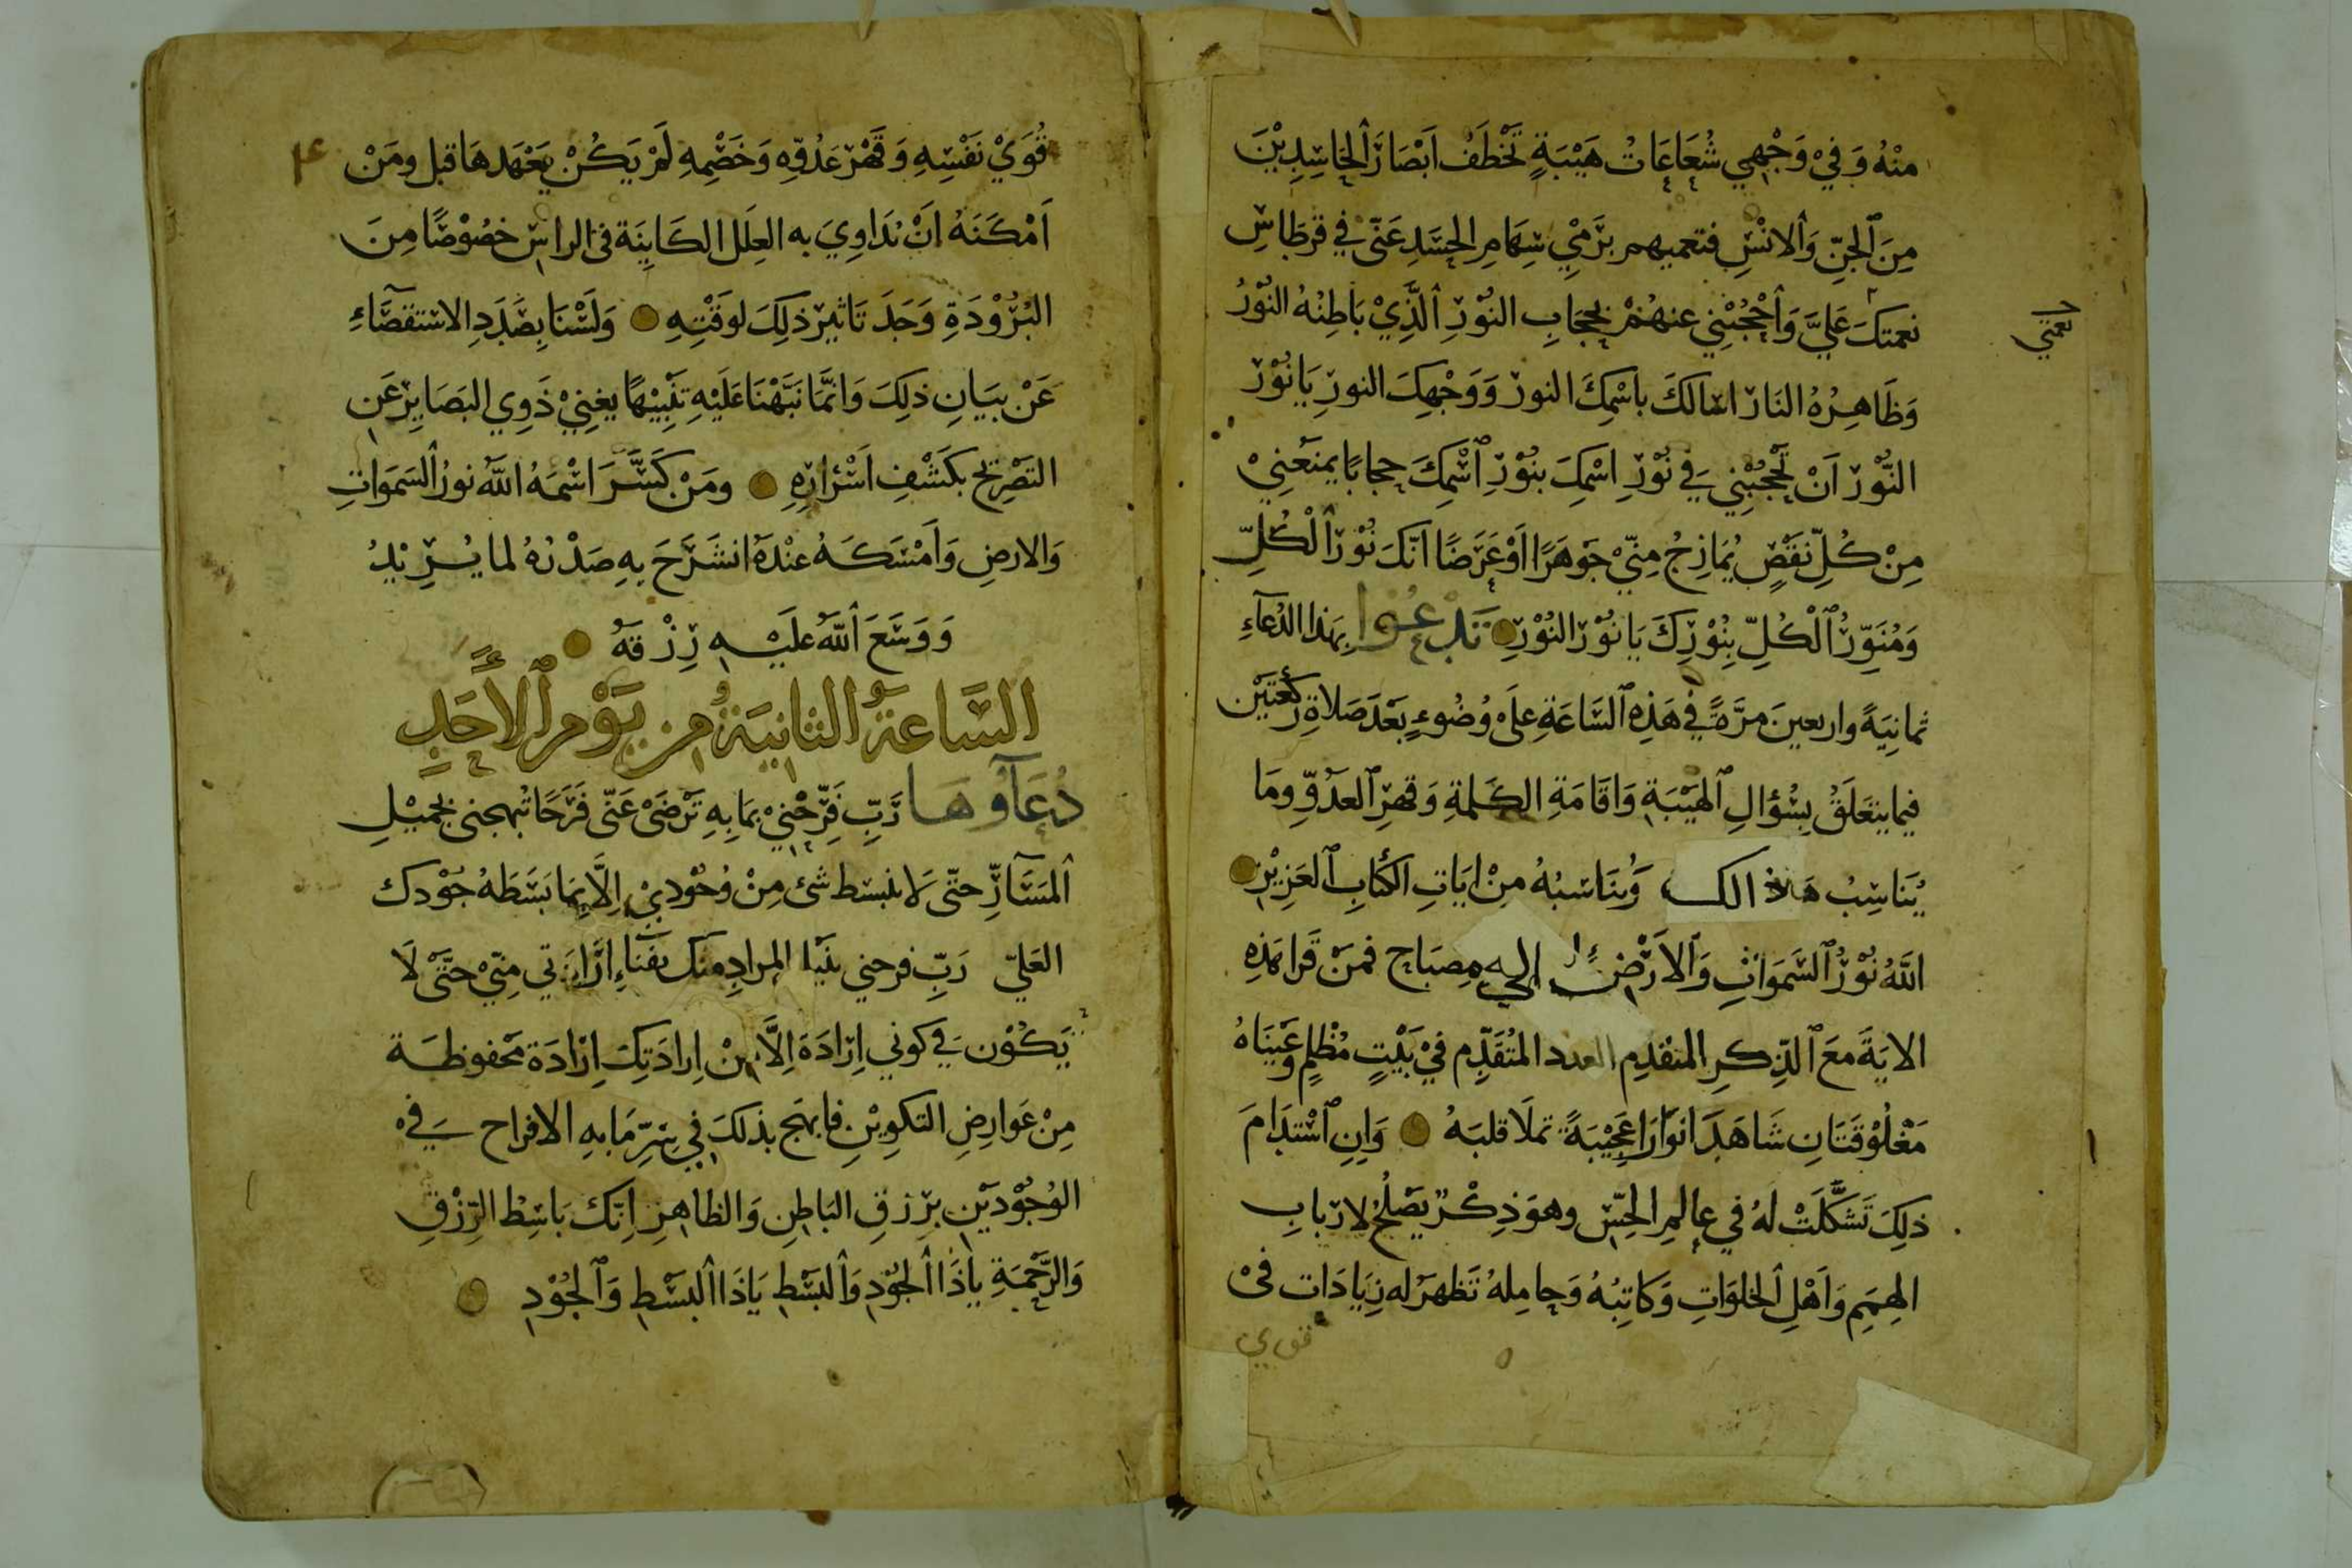 منْهُ وَفِيْ وَجْهِي شُعَاعَاتُ هَيْبَةٍ تَخْطَفُ اَبْصَارَ ٱلحَاسِدِيْنَ
مِنَ ٱلجِنِّ وَٱلانْسِ فتعميهم برَمْيِ سِهَامِ الحسَدِ عَنّي في قرطَاسِ
نعمتكَ عَليَّ وَٱحْجُبْنِي عنهُمْ بحجَابِ النوْرِ ٱلَّذِيْ بَاطِنُهُ النوْرُ
نعمتي
وَظَاهِرُهُ النَار اسَالكَ باسْمِكَ النور وَوَجْهِكَ النورِ يَا نُوْرَ
النُّوْرِ اَنْ تَحْجُبْنِي في نُوْرِ اسْمِكَ بنُوْرِ ٱسْمِكَ حجابًا يمنعْنِيْ
مِنْ كُلِّ نَقْصٍ يُمَازِجُ مِنِّيْ جَوْهَرًا اوْ عَرَضًا انّكَ نُوْرُ ٱلْكُلِّ
وَمُنَوِّرُ ٱلْكُلِّ بِنُوْرِكَ يَا نوْرَ النُوْرِ تَدْعُوا بهَذا الدُعَآءِ
ثمانِيَةً واربعينَ مرَّةً في هَذِهِ ٱلسَّاعَةِ علَى وُضُوءٍ بَعْدَ صَلاةِ ركْعَتَيْن
فيما يتَعَلَقُ بِسُؤالِ ٱلهَيْبَةِ وَاقَامَةِ الكَلمةِ وَقهرِ ٱلعدُوِّ وَمَا
يُنَاسِبُ هَاذ الك وَيُنَاسبُهُ منْ ايَاتِ الكتَابِ ٱلعَزِيْزِ
اللَّهُ نوْرُ ٱلسَّمَوَاتِ وَٱلاَرْضِ إلي مِصبَاح فمَنْ قَرا هَذِهِ
الايَةَ معَ ٱلذِّكرِ المتقدِم العدد المتُقَدِّم فيْ بَيْتٍ مُظْلمٍ وَعَيْنَاهُ
مَغْلُوْقَتَانِ شَاهَدَ انوَارًا عَجِيْبَةً تملَا قلبَهُ وَإنِ ٱسْتَدَامَ
ذلِكَ تَشَكَّلَتْ لهُ في عالمِ الحِسِّ وهوَ ذِكْرٌ يَصْلُحُ لارْبابِ
الهِمَمِ وَاَهْلِ ٱلخلوَاتِ وَكَاتِبُهُ وَحامِلهُ تَظهَرُ له زيَادَات فىْ
قوي
قُوَيْ نَفْسِهِ وَقَهْر عَدُوِّهِ وَخَصْمِهِ لَمْ يَكُنْ يَعْهَدهَا قبل ومَنْ
اَمْكَنَهُ اَنْ يُدَاوِيَ به العِلَل الكَايِنَة في الراسِ خصُوْصًا مِنَ
البُرُوْدَةِ وَجَدَ تَاثيرَ ذلِكَ لوَقْتِهِ وَلَسْنَا بِصَدَدِ الاستقصَآءِ
عَنْ بيَانِ ذلِكَ وَانَّمَا نَبَّهْنَا عَلَيْهِ تنْبِيْهًا يغنِيْ ذَوِي البَصَايِرِ عَن
التصْرِيح بكَشْفِ اَسْرَارِهِ ومَنْ كَسَّرَ اسْمَهُ اللَّه نورُ ٱلسَمَوَاتِ
وَالارضِ وَاَمْسَكَهُ عنْدَهُ انشَرَحَ بهِ صَدْرُهُ لما يُرِيْدُ
وَوَسَعَ ٱللَّهُ عليْهِ رِزْقهُ
السَّاعَةُ الثانيَةُ من يَوْمِ ٱلأَحَدِ
دُعَآؤُهَا رَبِّ فَرِّحْنِيْ بمَا بِهِ تَرْضَىْ عَنّى فَرَحًا تُبهجنى بجميْلِ
ٱلمَسَآرِّ حتّى لَا ينبسط شئ مِنْ وُجُوْدِيْ اِلَّا بِمَا بَسَطَهُ جُوْدك
العَليّ رَبِّ فرحني بنَيْلِ المرادِ منك بفنَاءِ ارَادَتي مِنّيْ حتَّىْ لَا
يَكُوْن في كوني اِرَادَة اِلَّا مِنْ اِرادَتِكَ اِرَادَة مَحفوظَة
مِنْ عَوارِضِ التكوِيْنِ فابهَج بذلكَ في سِرِّ مَا بهِ الافراح في
الوُجُوْدَيْنِ برَزقِ البَاطِنِ وَالظاهِرِ اِنّك بَاسِطُ الرِّزْقِ
وَالرَّحْمَةِ ياذَا ٱلجُوْدِ وَٱلبَسْطِ يَاذَا ٱلبَسْطِ وَٱلجُوْدِ